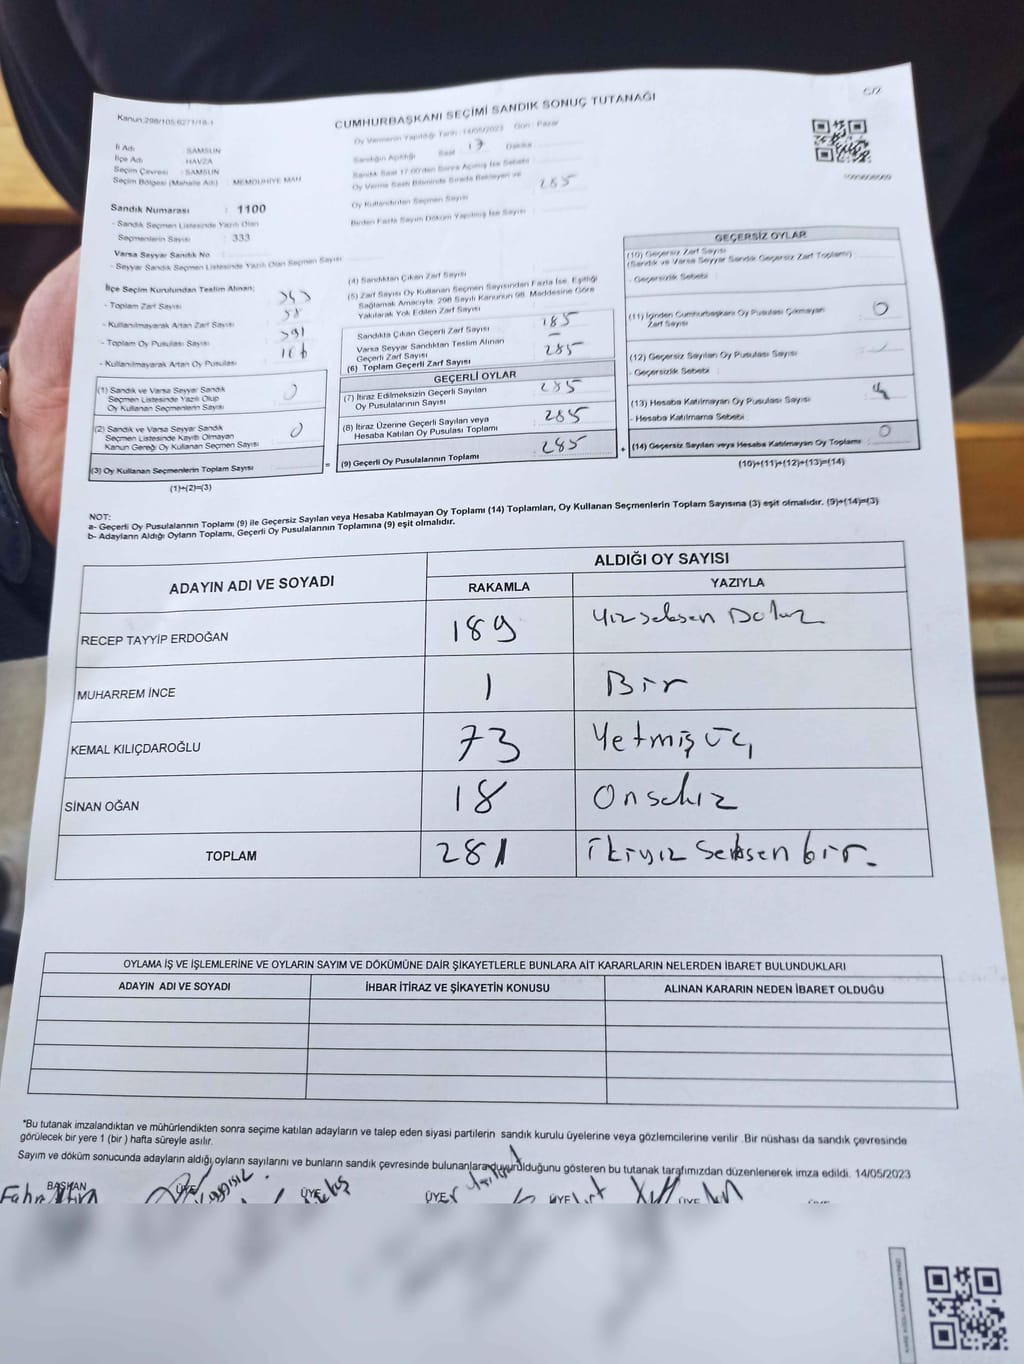 Kanun:298/105,6271/18-1
CUMHURBAŞKANI SEÇİMİ SANDIK SONUÇ TUTANAĞI
Oy Vermenin Yapıldığı Tarih :14/05/2023 Gün : Pazar
İl Adı : SAMSUN
İlçe Adı : HAVZA
Seçim Çevresi : SAMSUN
Seçim Bölgesi (Mahalle Adı) : MEMDUHİYE MAH
Sandığın Açıldığı Saat : 17 Dakika
Sandık Saat 17:00'den Sonra Açılmış İse Sebebi
Oy Verme Saati Bitiminde Sırada Bekleyen ve
Oy Kullandırılan Seçmen Sayısı
285
Birden Fazla Sayım Döküm Yapılmış İse Sayısı
Sandık Numarası : 1100
- Sandık Seçmen Listesinde Yazılı Olan
Seçmenlerin Sayısı : 333
Varsa Seyyar Sandık No
- Seyyar Sandık Seçmen Listesinde Yazılı Olan Seçmen Sayısı
İlçe Seçim Kurulundan Teslim Alınan;
- Toplam Zarf Sayısı
- Kullanılmayarak Artan Zarf Sayısı
- Toplam Oy Pusulası Sayısı
- Kullanılmayarak Artan Oy Pusulası
(1) Sandık ve Varsa Seyyar Sandık
Seçmen Listesinde Yazılı Olup
Oy Kullanan Seçmenlerin Sayısı
0
(2) Sandık ve Varsa Seyyar Sandık
Seçmen Listesinde Kayıtlı Olmayan
Kanun Gereği Oy Kullanan Seçmen Sayısı
0
(3) Oy Kullanan Seçmenlerin Toplam Sayısı
(1)+(2)=(3)
=
(4) Sandıktan Çıkan Zarf Sayısı
(5) Zarf Sayısı Oy Kullanan Seçmen Sayısından Fazla İse, Eşitliği
Sağlamak Amacıyla; 298 Sayılı Kanunun 98. Maddesine Göre
Yakılarak Yok Edilen Zarf Sayısı
Sandıkta Çıkan Geçerli Zarf Sayısı 185
Varsa Seyyar Sandıktan Teslim Alınan
Geçerli Zarf Sayısı –
(6) Toplam Geçerli Zarf Sayısı 285
GEÇERLİ OYLAR
(7) İtiraz Edilmeksizin Geçerli Sayılan
Oy Pusulalarının Sayısı 285
(8) İtiraz Üzerine Geçerli Sayılan veya
Hesaba Katılan Oy Pusulası Toplamı 285
(9) Geçerli Oy Pusulalarının Toplamı 285
+
GEÇERSİZ OYLAR
(10) Geçersiz Zarf Sayısı
(Sandık ve Varsa Seyyar Sandık Geçersiz Zarf Toplamı)
- Geçersizlik Sebebi
(11) İçinden Cumhurbaşkanı Oy Pusulası Çıkmayan
Zarf Sayısı 0
(12) Geçersiz Sayılan Oy Pusulası Sayısı
- Geçersizlik Sebebi
(13) Hesaba Katılmayan Oy Pusulası Sayısı 4
- Hesaba Katılmama Sebebi
(14) Geçersiz Sayılan veya Hesaba Katılmayan Oy Toplamı 0
(10)+(11)+(12)+(13)=(14)
NOT:
a- Geçerli Oy Pusulalarının Toplamı (9) ile Geçersiz Sayılan veya Hesaba Katılmayan Oy Toplamı (14) Toplamları, Oy Kullanan Seçmenlerin Toplam Sayısına (3) eşit olmalıdır. (9)+(14)=(3)
b- Adayların Aldığı Oyların Toplamı, Geçerli Oy Pusulalarının Toplamına (9) eşit olmalıdır.
ADAYIN ADI VE SOYADI
ALDIĞI OY SAYISI
RAKAMLA YAZIYLA
RECEP TAYYİP ERDOĞAN 189 Yüzseksen Dokuz
MUHARREM İNCE 1 Bir
KEMAL KILIÇDAROĞLU 73 Yetmiş üç
SİNAN OĞAN 18 Onsekiz
TOPLAM 281 ikiyüz Seksen bir.
OYLAMA İŞ VE İŞLEMLERİNE VE OYLARIN SAYIM VE DÖKÜMÜNE DAİR ŞİKAYETLERLE BUNLARA AİT KARARLARIN NELERDEN İBARET BULUNDUKLARI
ADAYIN ADI VE SOYADI İHBAR İTİRAZ VE ŞİKAYETİN KONUSU ALINAN KARARIN NEDEN İBARET OLDUĞU
*Bu tutanak imzalandıktan ve mühürlendikten sonra seçime katılan adayların ve talep eden siyasi partilerin sandık kurulu üyelerine veya gözlemcilerine verilir .Bir nüshası da sandık çevresinde
görülecek bir yere 1 (bir ) hafta süreyle asılır.
Sayım ve döküm sonucunda adayların aldığı oyların sayılarını ve bunların sandık çevresinde bulunanlara duyurulduğunu gösteren bu tutanak tarafımızdan düzenlenerek imza edildi. 14/05/2023
BAŞKAN ÜYE ÜYE ÜYE ÜYE ÜYE